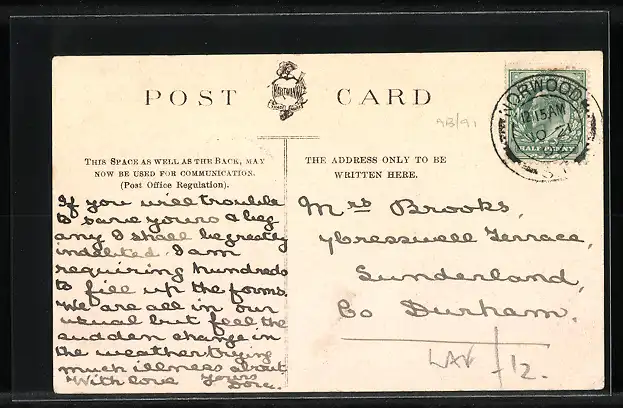 POST CARD
HARTMANN
AB/91
NORWOOD
12.15AM
HALF PENNY
THIS SPACE AS WELL AS THE BACK, MAY
NOW BE USED FOR COMMUNICATION.
(Post Office Regulation).
THE ADDRESS ONLY TO BE
WRITTEN HERE.
If you will trouble
to save yours & beg
any I shall be greatly
indebted. I am
requiring hundreds
to fill up the forms.
We are all in our
usual but feel the
sudden change in
the weather. trying
much illness about.
With love yours
Mrs Brooks,
Cresswell Terrace,
Sunderland,
Co Durham.
LAV
-/12.